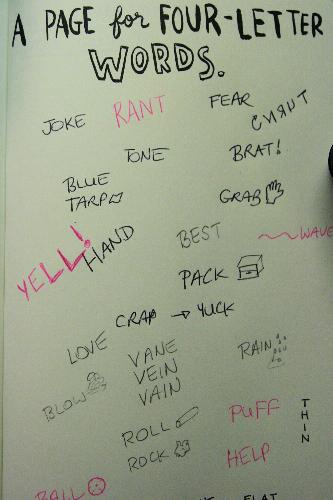 A PAGE for FOUR-LETTER
WORDS.
JOKE RANT FEAR
TONE BRAT!
BLUE
TARP
GRAB
YELL!
HAND
BEST WAVE
PACK
CRAP → YUCK
LOVE
VANE
VEIN
VAIN
RAIN
BLOW
ROLL
ROCK
PUFF
THIN
HELP
BALL
FLAT